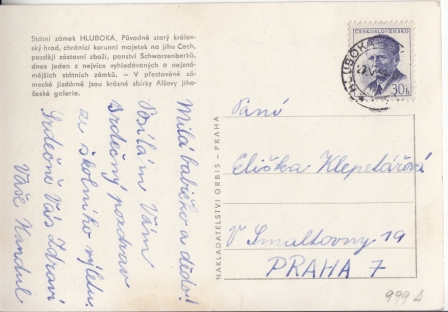 Státní zámek HLUBOKÁ. Původně starý královský
hrad, chránící korunní majetek na jihu Čech,
později zástavní zboží, panství Schwarzenberků,
dnes jeden z nejvíce vyhledávaných a nejznámějších
státních zámků. — V přestavěné zámecké
jízdárně jsou krásné sbírky Alšovy jihočeské
galerie.
Milá babičko a dědo!
Posílám Vám
srdečný pozdrav
ze školního výletu.
Srdečně Vás zdraví
Váše
NAKLADATELSTVÍ ORBIS - PRAHA
ČESKOSLOVENSKO
30h
HLUBOKÁ
Paní
Eliška Klepetářová
V Smaltovny 19
PRAHA 7
999 A